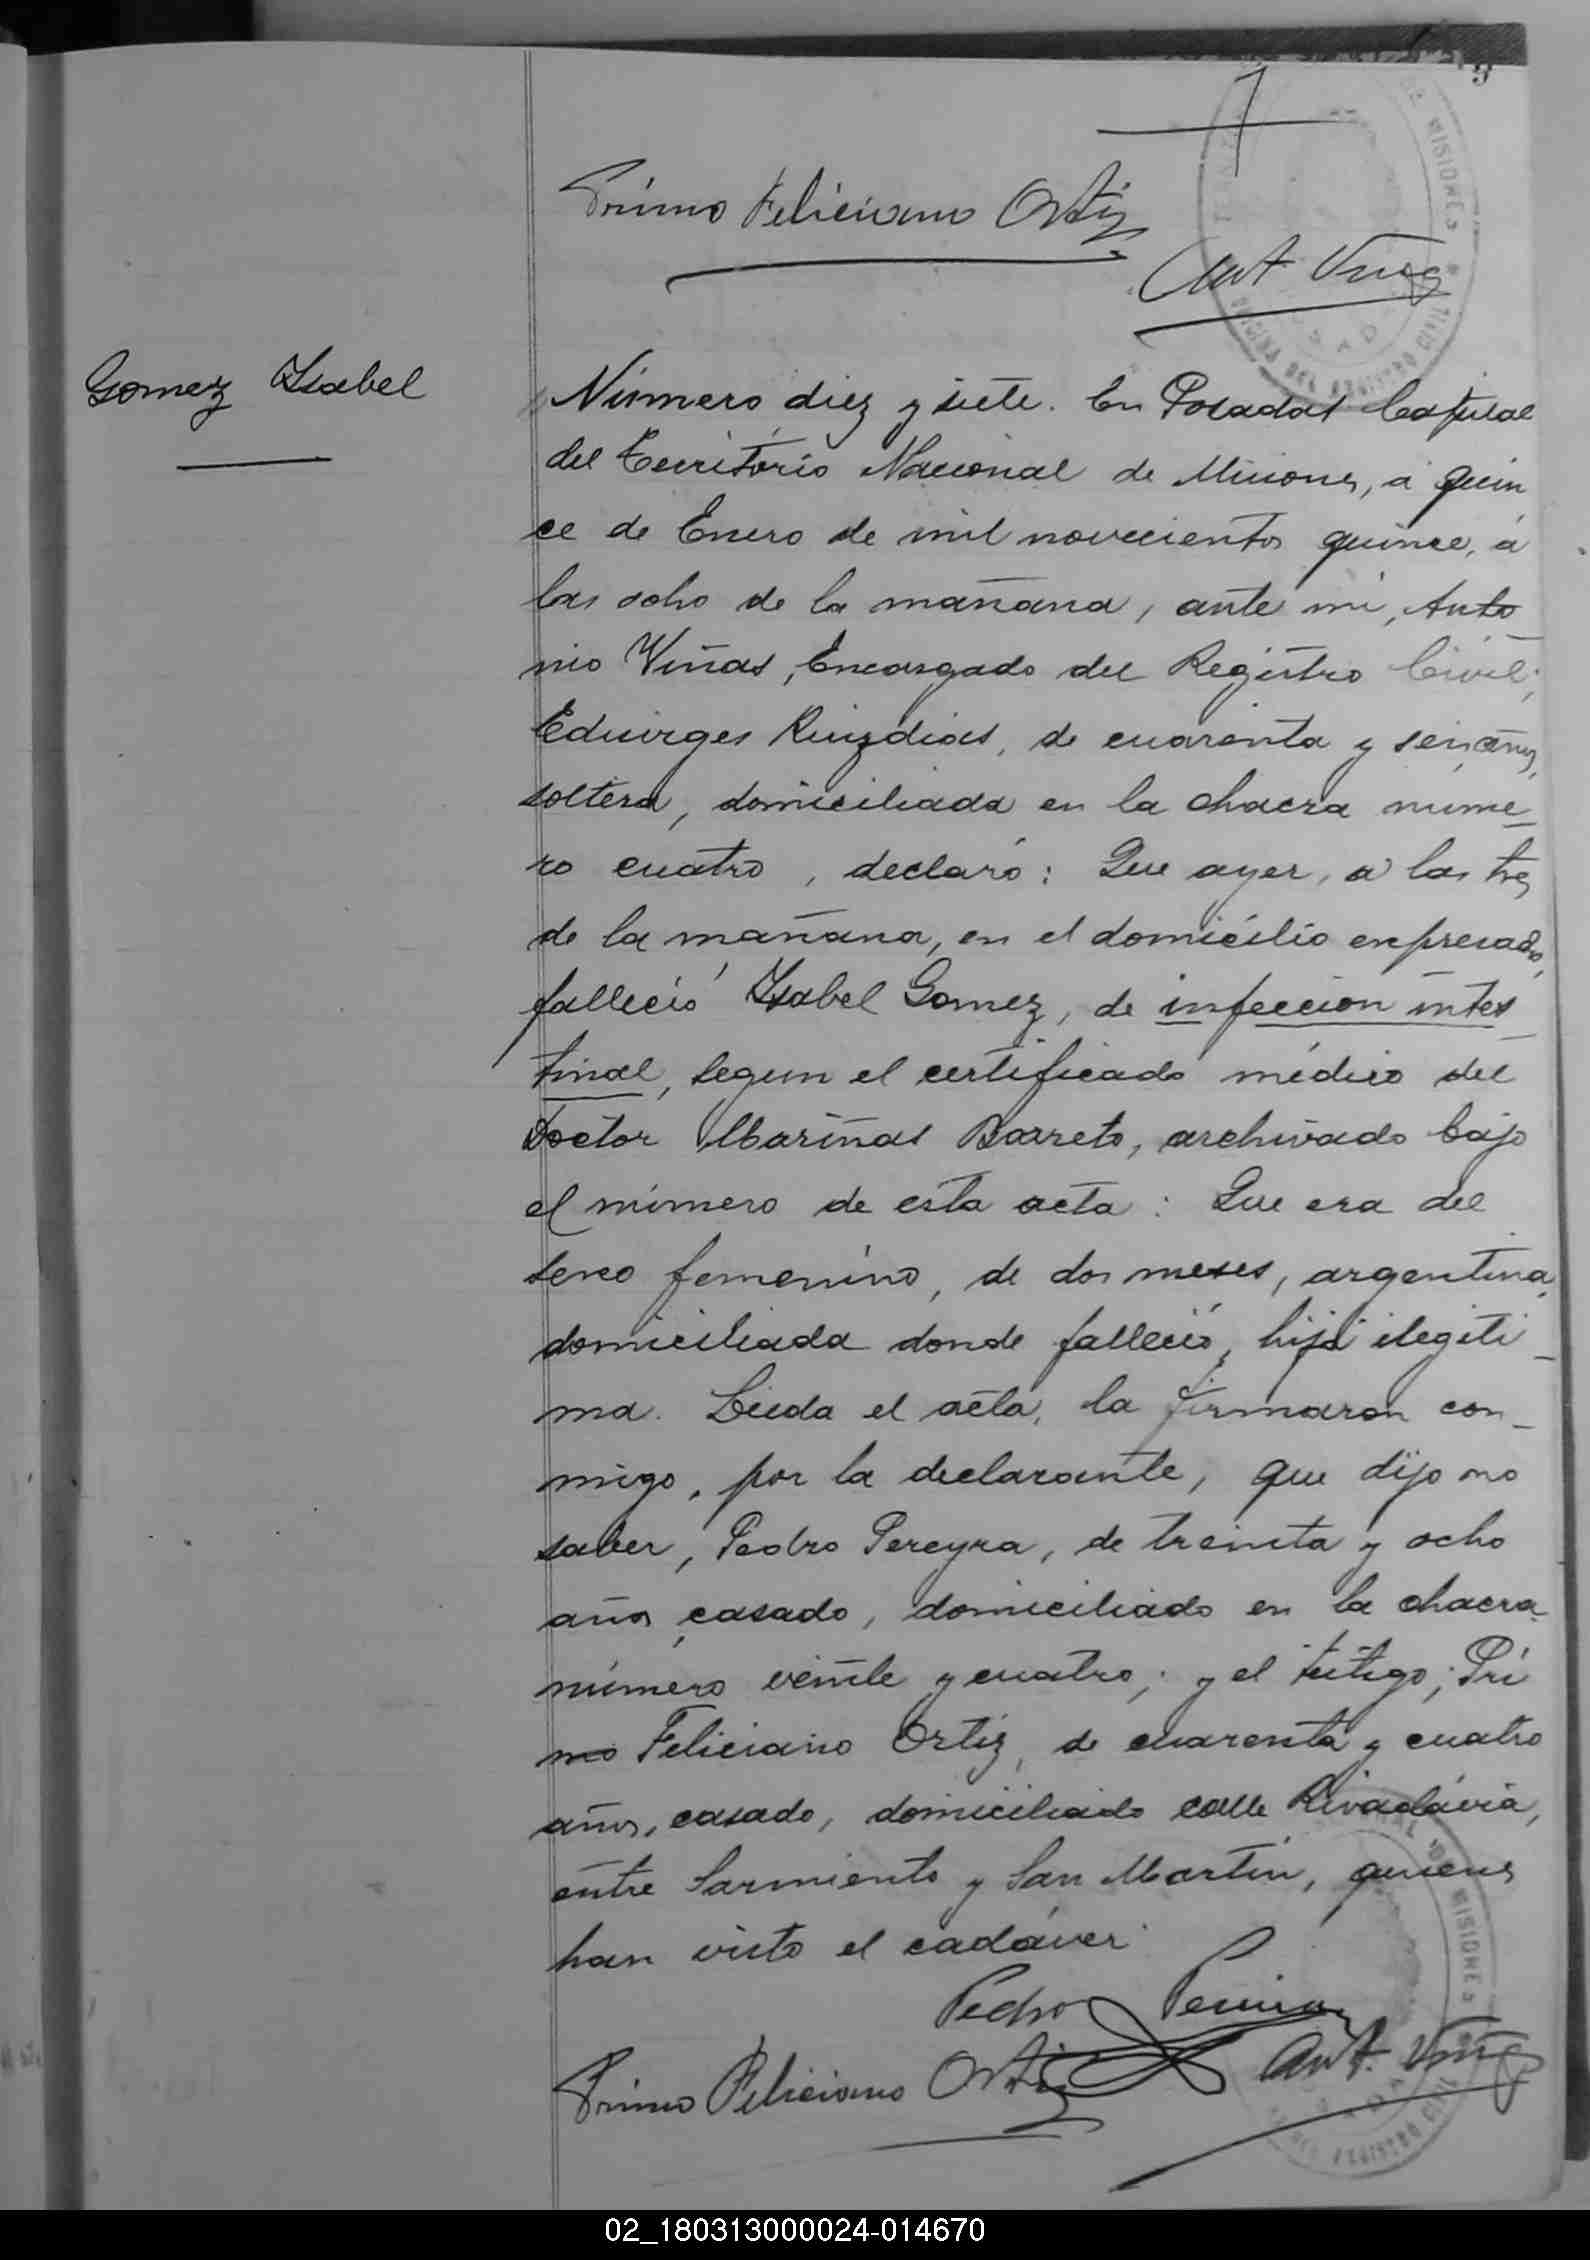 9
Primo Feliciano Ortiz
Ant. Viñas
Gomez Ysabel
Número diez y siete. En Posadas Capital
del Territorio Nacional de Misiones, á quin
ce de Enero de mil novecientos quince, á
las ocho de la mañana, ante mi, Anto
nio Viñas, Encargado del Registro Civil;
Eduirges Ruizdias, de cuarenta y seis años,
soltera, domiciliada en la chacra núme-
ro cuatro, declaró: Que ayer, a las tres
de la mañana, en el domicilio expresado,
falleció Ysabel Gomez, de infeccion intes-
tinal, segun el certificado médico del
Doctor Mariñas Barreto, archivado bajo
el número de esta acta: Que era del
sexo femenino, de dos meses, argentina,
domiciliada donde falleció, hija ilegiti-
ma. Leida el acta, la firmaron con-
migo, por la declarante, que dijo no
saber, Pedro Pereyra, de treinta y ocho
años, casado, domiciliado en la chacra
número veinte y cuatro; y el testigo; Pri
mo Feliciano Ortiz, de cuarenta y cuatro
años, casado, domiciliado calle Rivadavia,
entre Sarmiento y San Martin, quienes
han visto el cadáver.
Pedro Pereira
Primo Feliciano Ortiz
Ant. Viñas
02_180313000024-014670